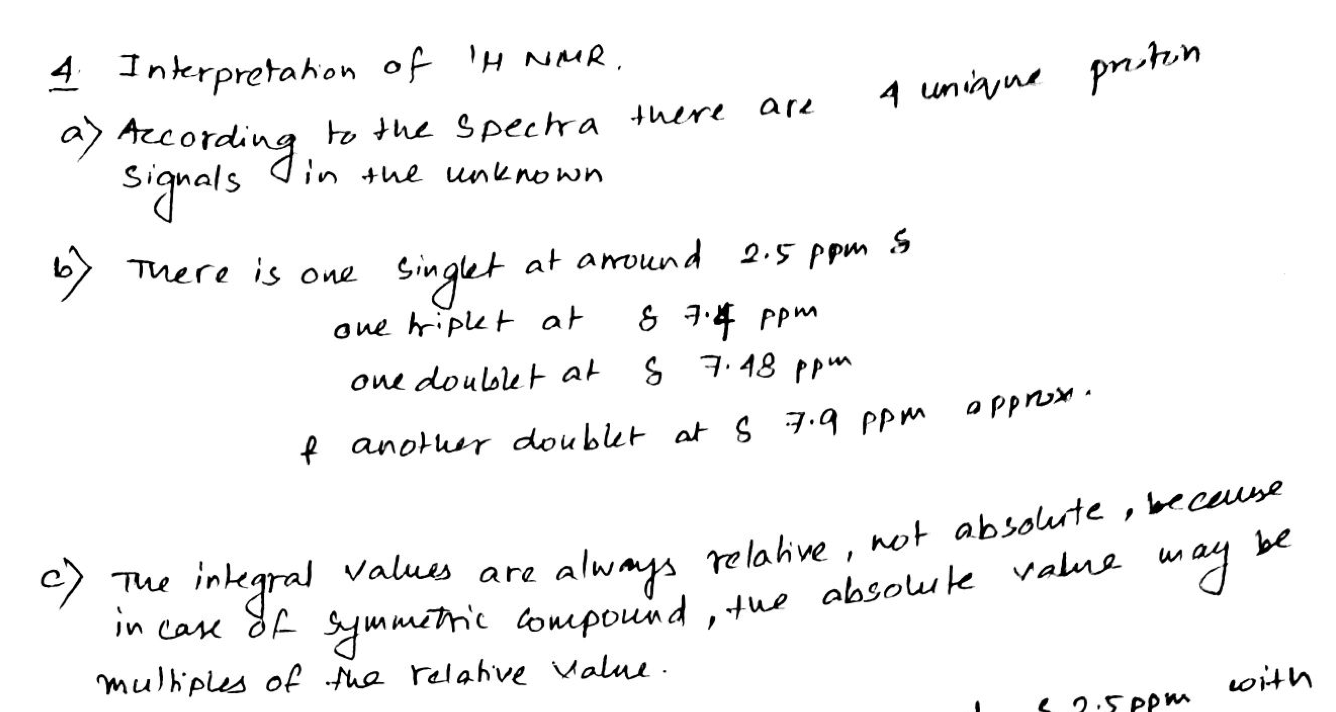 4. Interpretation of ¹H NMR.
a) According to the spectra there are 4 unique proton
signals in the unknown
b) There is one singlet at arround 2.5 ppm δ
one triplet at δ 7.4 ppm
one doublet at δ 7.48 ppm
& another doublet at δ 7.9 ppm approx.
c) The integral values are always relative, not absolute, because
in case of symmetric compound, the absolute value may be
multiples of the relative value.
δ 2.5 ppm with